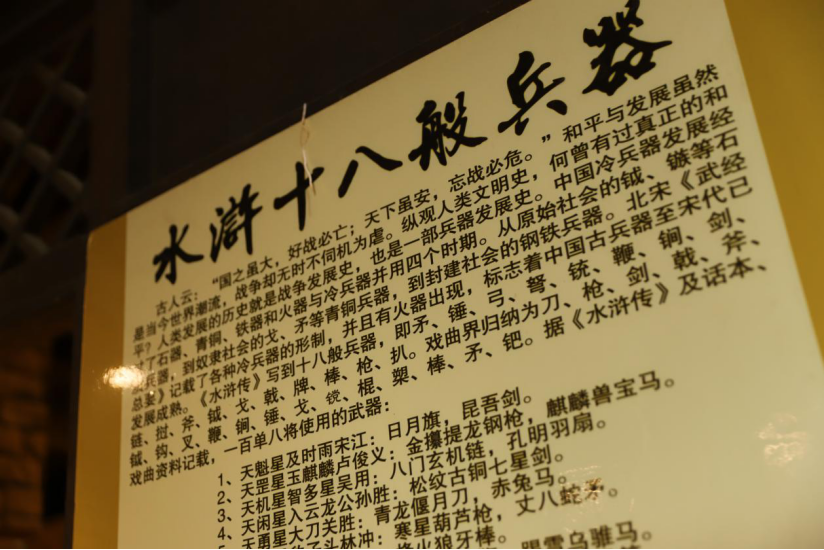 水滸十八般兵器
古人云：“国之虽大，好战必亡；天下虽安，忘战必危。”和平与发展虽然
是当今世界潮流，战争却无时不伺机为虐。纵观人类文明史，何曾有过真正的和
平？人类发展的历史就是战争发展史，也是一部兵器发展史。中国冷兵器发展经
了石器、青铜、铁器和火器与冷兵器并用四个时期。从原始社会的钺、镞等石
兵器，到奴隶社会的戈、矛等青铜兵器，到封建社会的钢铁兵器。北宋《武经
总要》记载了各种冷兵器的形制，并且有火器出现，标志着中国古兵器至宋代已
发展成熟。《水浒传》写到十八般兵器，即矛、锤、弓、弩、铳、鞭、锏、剑、
链、挝、斧、钺、戈、戟、牌、棒、枪、扒。戏曲界归纳为刀、枪、剑、戟、斧、
钺、钩、叉、鞭、锏、锤、戈、镋、棍、槊、棒、矛、钯。据《水浒传》及话本、
戏曲资料记载，一百单八将使用的武器：
1、天魁星及时雨宋江：日月旗，昆吾剑。
2、天罡星玉麒麟卢俊义：金攥提龙钢枪，麒麟兽宝马。
3、天机星智多星吴用：八门玄机链，孔明羽扇。
4、天闲星入云龙公孙胜：松纹古铜七星剑。
天勇星大刀关胜：青龙偃月刀，赤兔马。
子头林冲：寒星葫芦枪，丈八蛇矛。
火狼牙棒。
踢雪乌骓马。